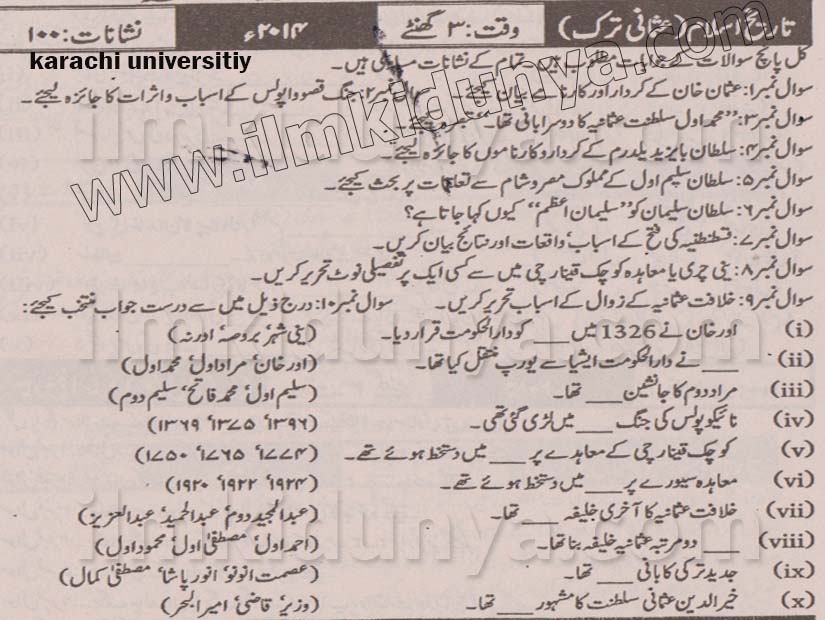 تاریخ اسلام (عثمانی ترک) وقت: ۳ گھنٹے ۲۰۱۴ء نشانات: ۱۰۰
karachi universitiy
کل پانچ سوالات کے جوابات مطلوب ہیں۔ تمام کے نشانات مساوی ہیں۔
سوال نمبر۱: عثمان خان کے کردار اور کارنامے بیان کیجئے۔ سوال نمبر۲: جنگ قصووا پولس کے اسباب و اثرات کا جائزہ لیجئے۔
سوال نمبر۳: ”محمد اول سلطنت عثمانیہ کا دوسرا بانی تھا“
سوال نمبر۴: سلطان بایزید یلدرم کے کردار و کارناموں کا جائزہ لیجئے۔
سوال نمبر۵: سلطان سلیم اول کے مملوک مصر و شام سے تعلقات پر بحث کیجئے۔
سوال نمبر۶: سلطان سلیمان کو ”سلیمان اعظم“ کیوں کہا جاتا ہے؟
سوال نمبر۷: قسطنطنیہ کی فتح کے اسباب‘ واقعات اور نتائج بیان کریں۔
سوال نمبر۸: ینی چری یا معاہدہ کوچک قینارچی میں سے کسی ایک پر تفصیلی نوٹ تحریر کریں۔
سوال نمبر۹: خلافت عثمانیہ کے زوال کے اسباب تحریر کریں۔ سوال نمبر۱۰: درج ذیل میں سے درست جواب منتخب کیجئے:
(i) اور خان نے 1326 میں ___ کو دارالحکومت قرار دیا۔ (ینی شہر‘ بروصہ‘ اورنہ)
(ii) ___ نے دارالحکومت ایشیا سے یورپ منتقل کیا تھا۔ (اور خان‘ مراد اول‘ محمد اول)
(iii) مراد دوم کا جانشین ___ تھا۔ (سلیم اول‘ محمد فاتح‘ سلیم دوم)
(iv) نائیکوپولس کی جنگ ___ میں لڑی گئی تھی۔ (۱۳۹۶‘ ۱۳۷۵‘ ۱۳۶۹)
(v) کوچک قینارچی کے معاہدے پر ___ میں دستخط ہوئے تھے۔ (۱۷۷۴‘ ۱۷۶۵‘ ۱۷۵۰)
(vi) معاہدہ سیورے پر ___ میں دستخط ہوئے تھے۔ (۱۹۲۴‘ ۱۹۲۲‘ ۱۹۲۰)
(vii) خلافت عثمانیہ کا آخری خلیفہ ___ تھا۔ (عبدالمجید دوم‘ عبدالحمید‘ عبدالعزیز)
(viii) ___ دو مرتبہ عثمانیہ خلیفہ بنا تھا۔ (احمد اول‘ مصطفیٰ اول‘ محمود اول)
(ix) جدید ترکی کا بانی ___ تھا۔ (عصمت انونو‘ انور پاشا‘ مصطفیٰ کمال)
(x) خیر الدین عثمانی سلطنت کا مشہور ___ تھا۔ (وزیر‘ قاضی‘ امیر البحر)
www.ilmkidunya.com
ilmkidunya.com
ilmkidunya.com
ilmkidunya.com